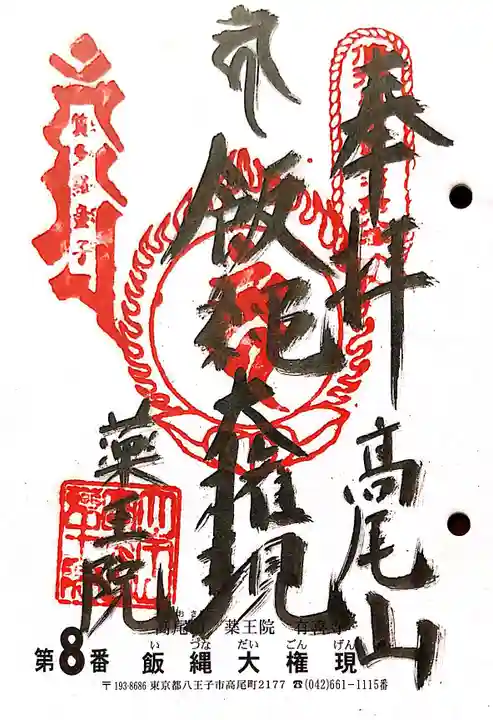 奉拝
高尾山
飯縄大権現
薬王院
高尾山 薬王院 有喜寺
第8番 飯縄大権現
いづなだいごんげん
〒193-8686 東京都八王子市高尾町2177 ☎(042)661-1115番